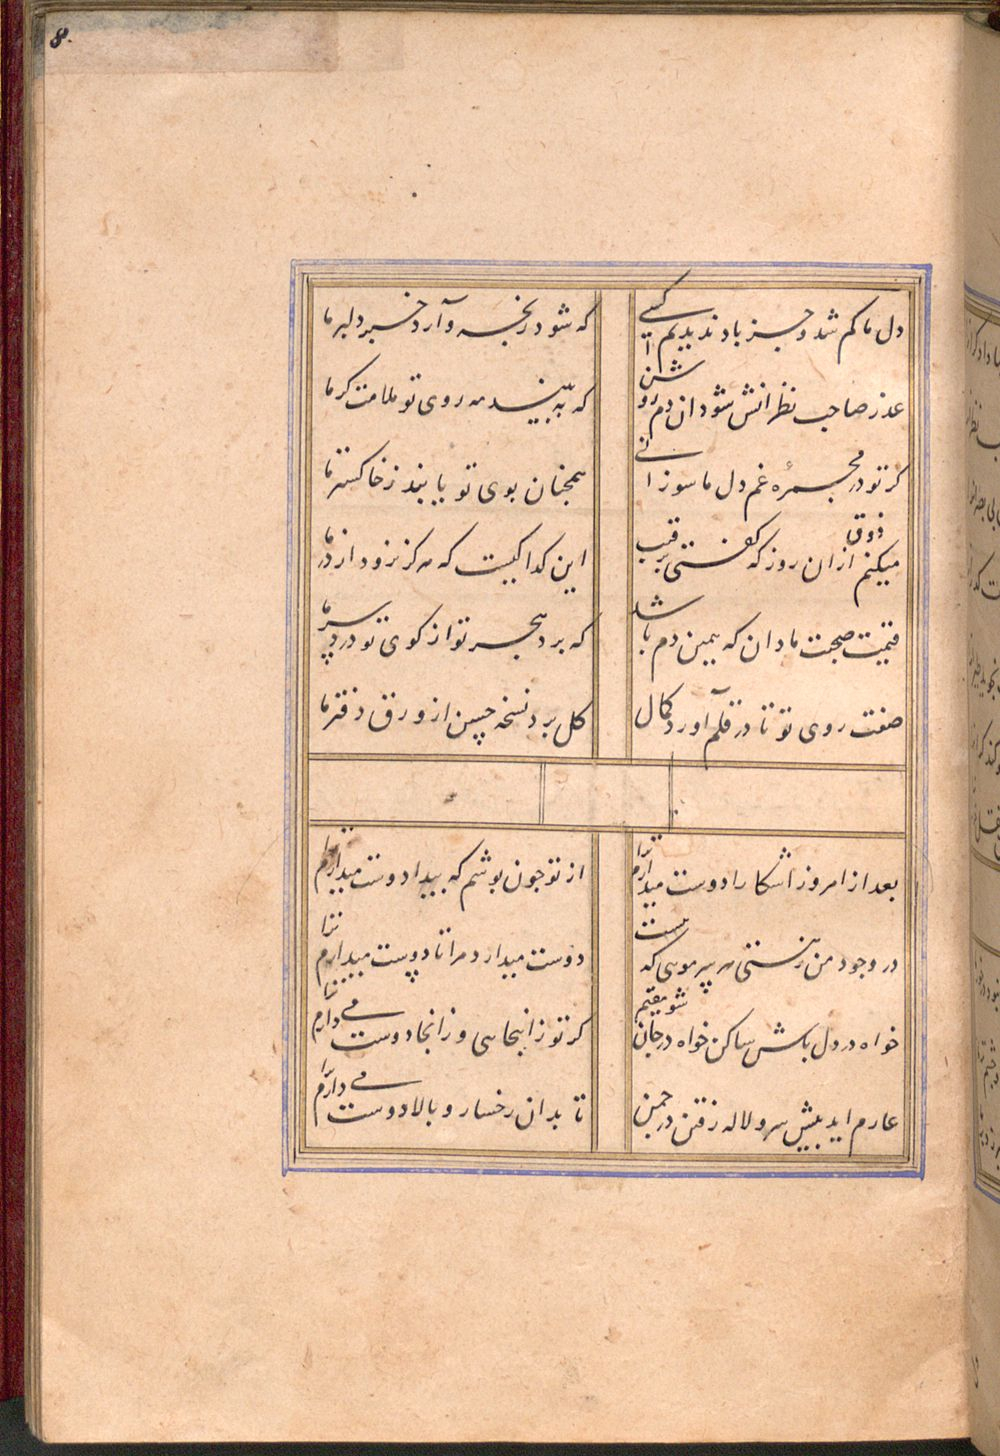 8.
دل ما کم شد و جز باد ندیدیم کسی
که شود رنجه و آرد خبر دلبر ما
عذر صاحب نظرانش شود ان دم روشن
که به بیند مه روی تو ملامت کر ما
کر تو در مجمرهٔ غم دل ما سوزانی
همچنان بوی تو یابند ز خاکستر ما
میکنم ذوق از ان روز که کفتی برقیب
این کدا کیست که هرکز نرود از در ما
قیمت صحبت ما دان که همین دم باشد
که برد هجر تو از کوی تو درد سر ما
صفت روی تو تا در قلم آورد کمال
کل برد نسخه حسن از ورق دفتر ما
بعد از امروز اشکارا دوست میدارم ترا
از تو چون پوشم که پیدا دوست میدارم ترا
در وجود من ز هستی هر سر مویی که هست
دوست میدارد مرا تا دوست میدارم ترا
خواه در دل باش ساکن خواه در جان شو مقیم
کر تو ز اینجایی و ز انجا دوست می دارم ترا
عارم اید پیش سرو و لاله رفتن در چمن
تا بدان رخسار و بالا دوست می دارم ترا